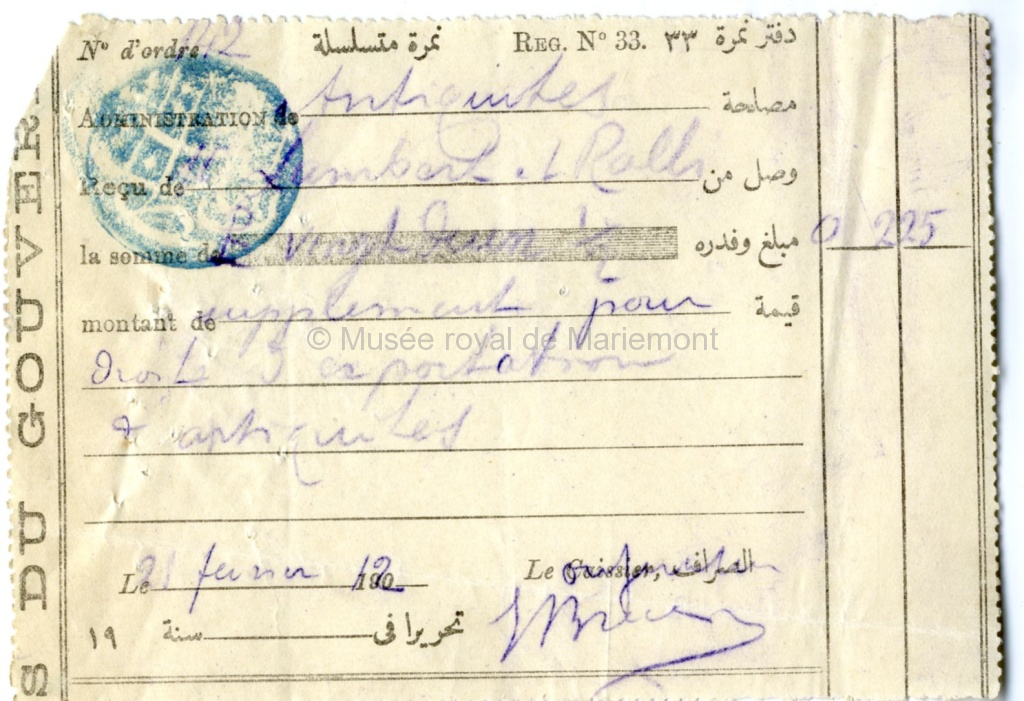 N° d'ordre نمرة متسلسلة REG. N° 33. دفتر نمرة ٣٣
ADMINISTRATION de Antiquités مصلحة
Reçu de Lambert et Ralli وصل من
la somme de vingt deux ½ مبلغ وقدره 0 225
montant de supplement pour قيمة
© Musée royal de Mariemont
droits d'exportation
d'antiquités
Le 21 fevrier 1912 Le Caissier, الصراف
١٩ سنة تحريرا فى
S DU GOUVER